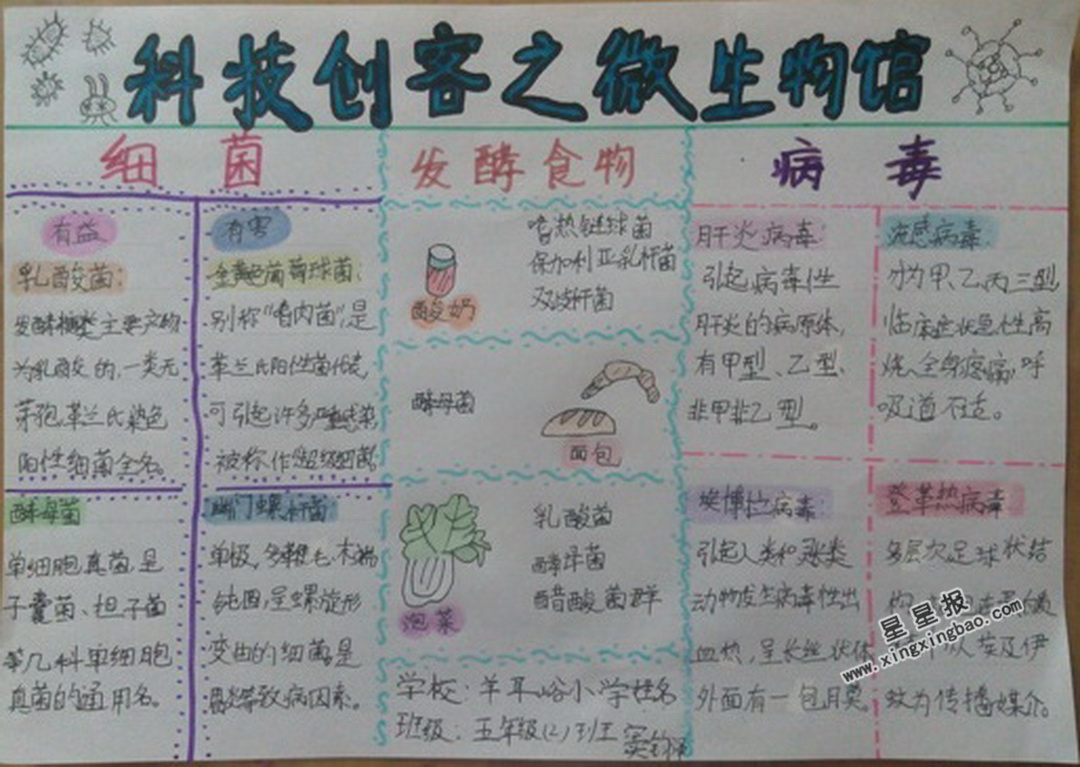 科技创客之微生物馆
细菌
有益
乳酸菌：
发酵糖类主要产物
为乳酸的，一类无
芽孢、革兰氏染色
阳性细菌全名。
酵母菌
单细胞真菌是
子囊菌、担子菌
等几科单细胞
真菌的通用名。
有害
金黄色葡萄球菌：
别称"嗜肉菌"，是
革兰氏阳性菌代表，
可引起许多严重感染
被称作超级细菌。
幽门螺杆菌
单极、多鞭毛、末端
钝圆，呈螺旋形
变曲的细菌是
导致病因素。
发酵食物
酸奶
嗜热链球菌
保加利亚乳杆菌
双歧杆菌
酵母菌
面包
泡菜
乳酸菌
酵母菌
醋酸菌群
学校：羊耳峪小学姓名
班级：五年级(2)班
病毒
肝炎病毒：
引起病毒性
肝炎的病原体，
有甲型、乙型、
非甲非乙型。
流感病毒：
分为甲、乙、丙三型
临床症状急性高
烧、全身疼痛，呼
吸道不适。
埃博拉病毒：
引起人类和灵长类
动物发生病毒性出
血热，呈长丝状体
外面有一包膜。
登革热病毒
多层次足球状结
埃及伊
蚊为传播媒介。
星星报
www.xingxingbao.com